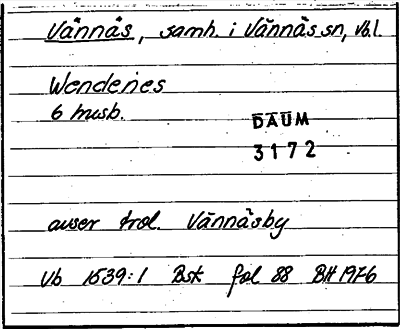 Vännäs, samh. i Vännäs sn, Vbl.
Wendenes
6 husb.
DAUM
3172
avser trol. Vännäsby
Vb 1539:1 Bsk fol 88 BH 1976